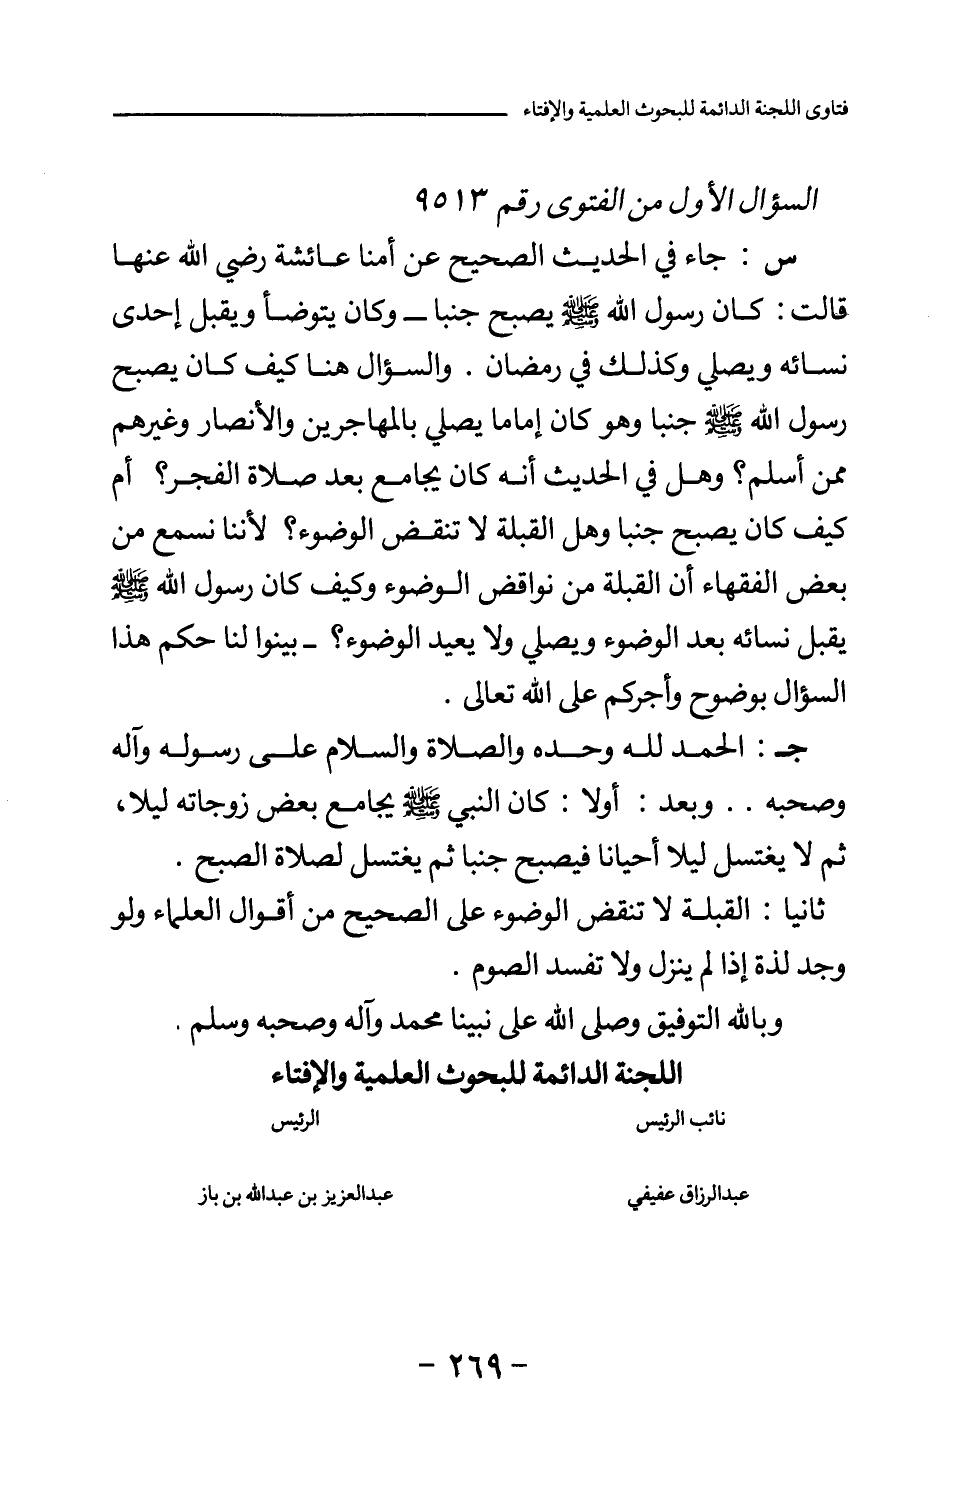 فتاوى اللجنة الدائمة للبحوث العلمية والإفتاء
السؤال الأول من الفتوى رقم ٩٥١٣
س : جاء في الحديث الصحيح عن أمنا عائشة رضي الله عنها
قالت : كان رسول الله ﷺ يصبح جنبا ــ وكان يتوضأ ويقبل إحدى
نسائه ويصلي وكذلك في رمضان . والسؤال هنا كيف كان يصبح
رسول الله ﷺ جنبا وهو كان إماما يصلي بالمهاجرين والأنصار وغيرهم
ممن أسلم؟ وهل في الحديث أنه كان يجامع بعد صلاة الفجر؟ أم
كيف كان يصبح جنبا وهل القبلة لا تنقض الوضوء؟ لأننا نسمع من
بعض الفقهاء أن القبلة من نواقض الوضوء وكيف كان رسول الله ﷺ
يقبل نسائه بعد الوضوء ويصلي ولا يعيد الوضوء؟ ـ بينوا لنا حكم هذا
السؤال بوضوح وأجركم على الله تعالى .
جـ : الحمد لله وحده والصلاة والسلام على رسوله وآله
وصحبه . . وبعد : أولا : كان النبي ﷺ يجامع بعض زوجاته ليلا،
ثم لا يغتسل ليلا أحيانا فيصبح جنبا ثم يغتسل لصلاة الصبح .
ثانيا : القبلة لا تنقض الوضوء على الصحيح من أقوال العلماء ولو
وجد لذة إذا لم ينزل ولا تفسد الصوم .
وبالله التوفيق وصلى الله على نبينا محمد وآله وصحبه وسلم .
اللجنة الدائمة للبحوث العلمية والإفتاء
نائب الرئيس الرئيس
عبدالرزاق عفيفي عبدالعزيز بن عبدالله بن باز
- ٢٦٩ -